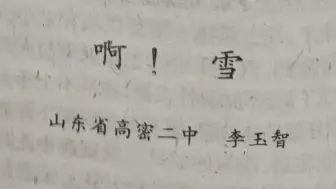 啊！ 雪
山东省高密二中 李玉智